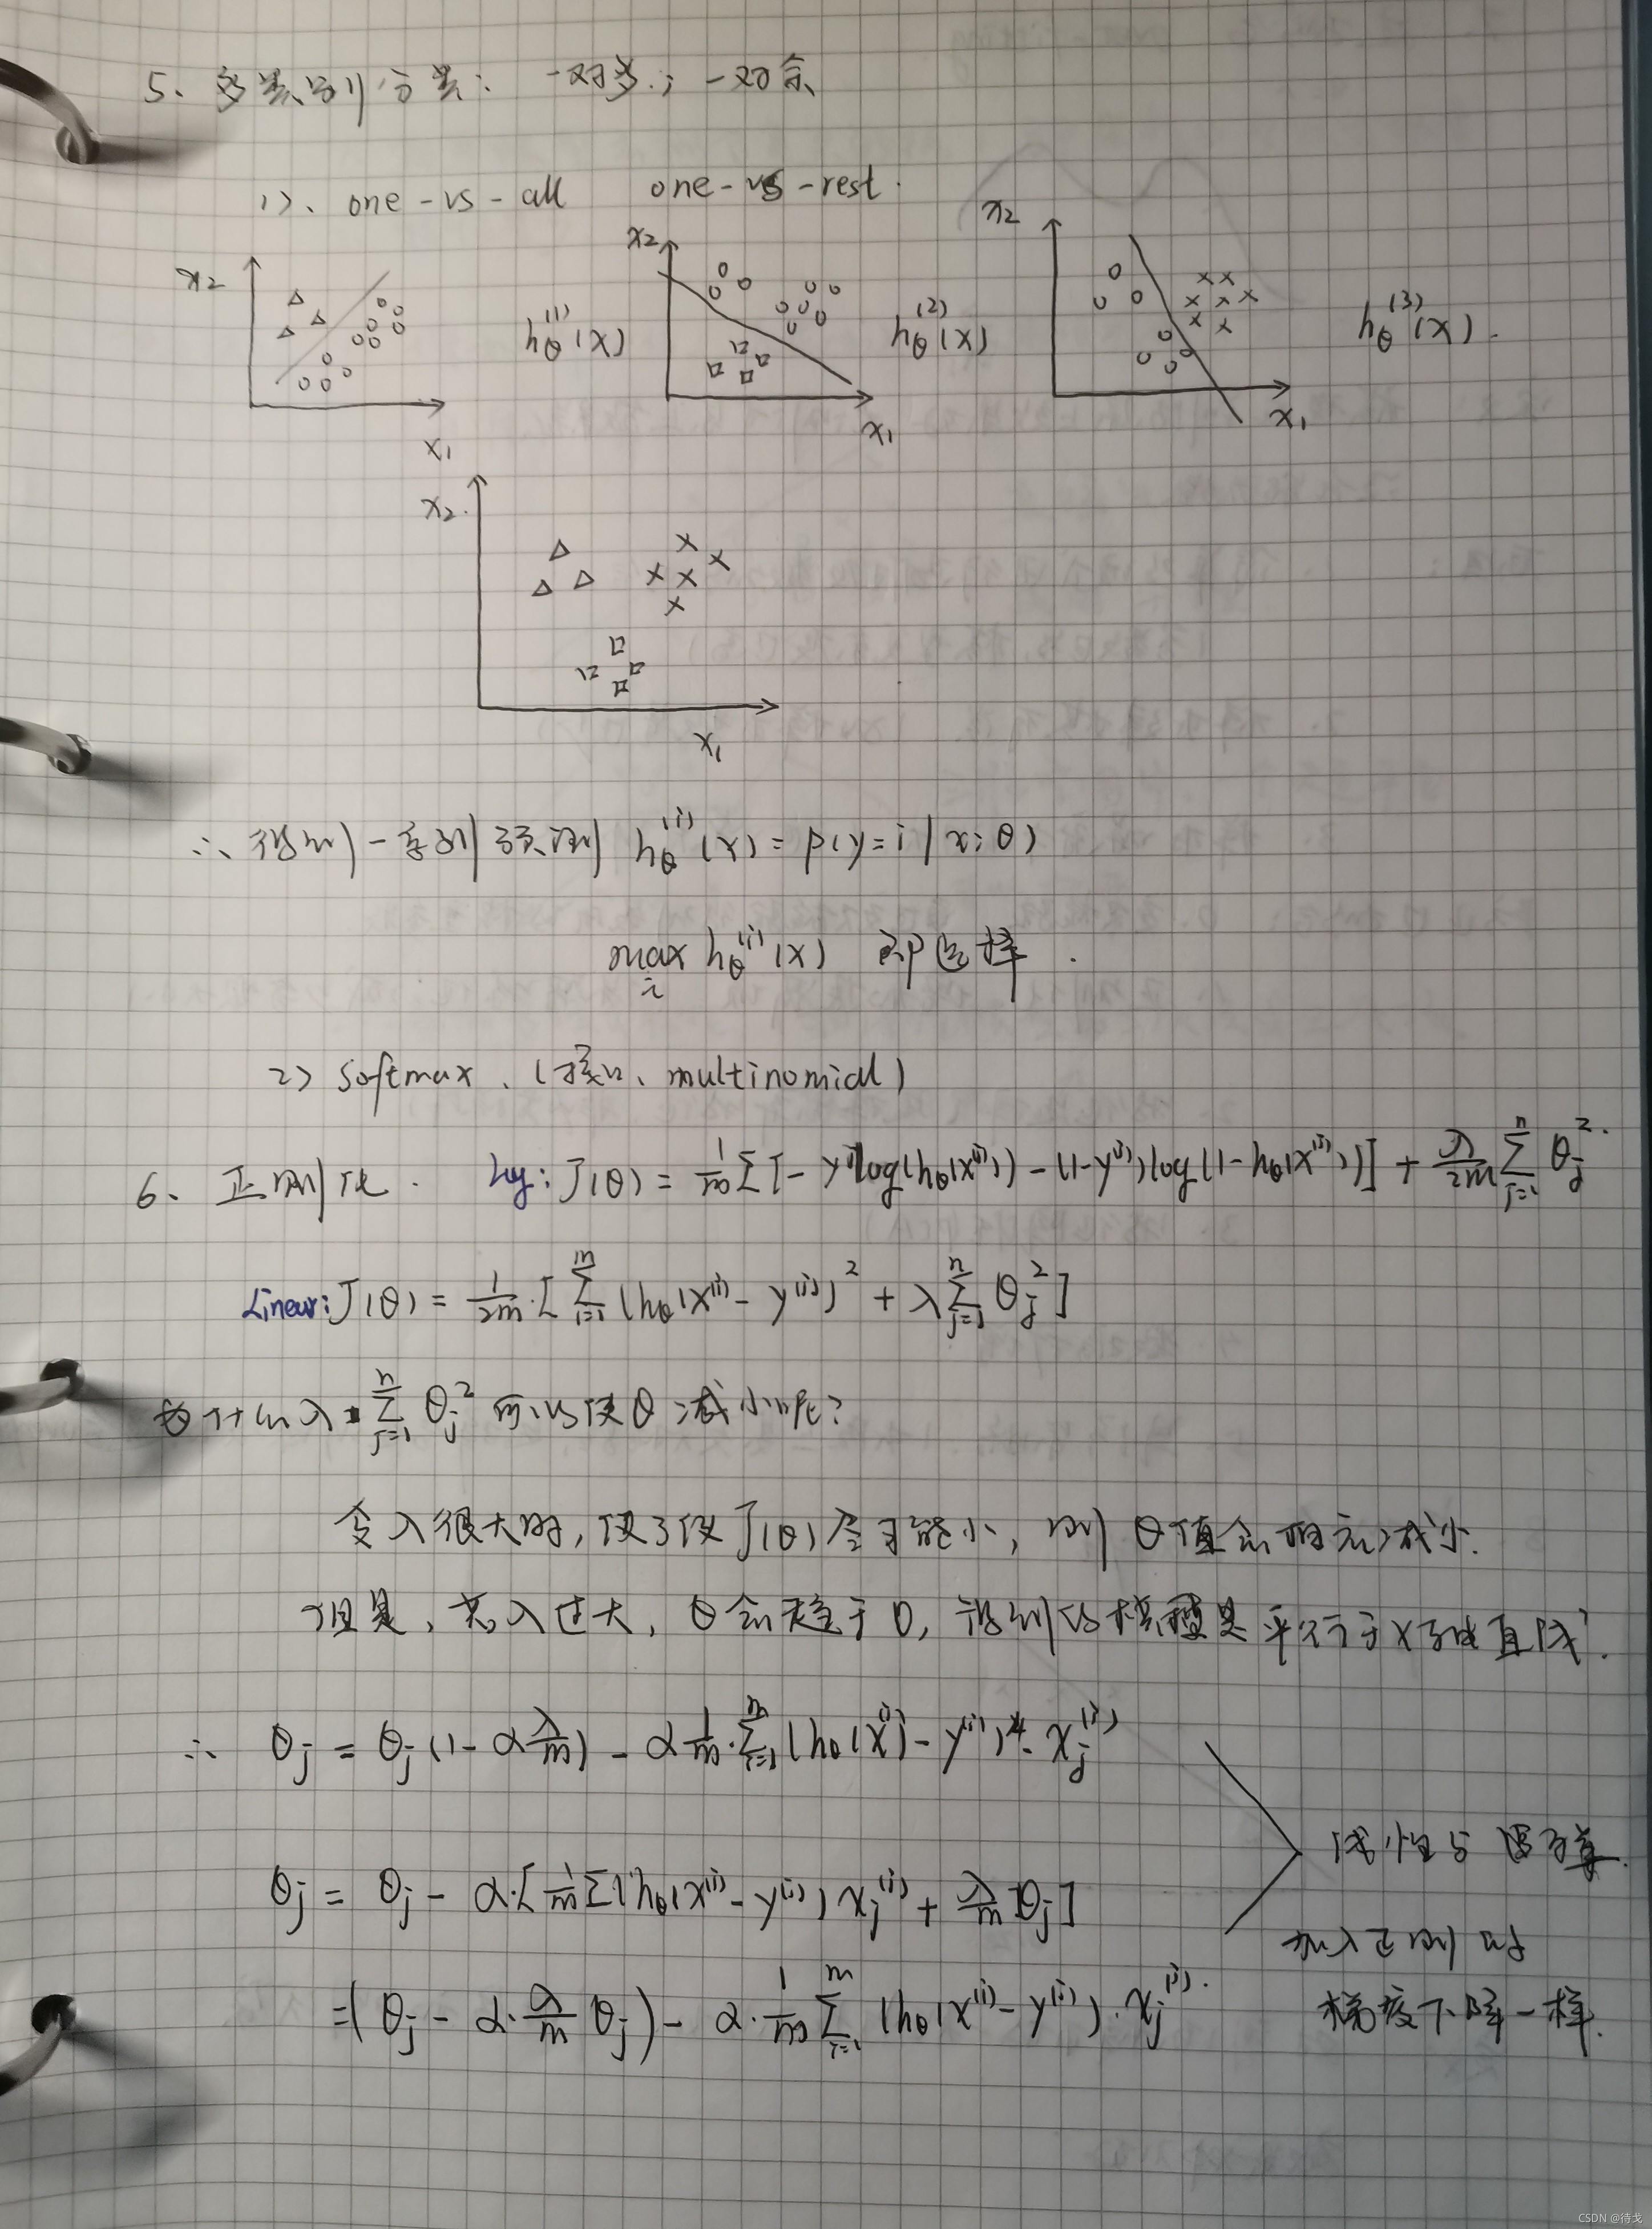 5、多类别分类： 一对多； 一对余
1）、one-vs-all one-vs-rest.
x₂ x₂ x₂
h_θ^(1)(x) h_θ^(2)(x) h_θ^(3)(x).
x₁ x₁ x₁
x₂.
x₁
∴ 得到一系列预测 h_θ^(i)(x) = p(y=i | x; θ)
max_i h_θ^(i)(x) 即选择.
2） softmax、( 、multinomial)
6、正则化. J(θ) = 1/m Σ[- y^(i)log(h_θ(x^(i))) - (1-y^(i))log(1-h_θ(x^(i)))] + λ/2m Σ_{j=1}^{n} θ_j^2.
Linear: J(θ) = 1/2m·[Σ_{i=1}^{m} (h_θ(x^(i) - y^(i))^2 + λΣ_{j=1}^{n} θ_j^2]
加 λ Σ_{j=1}^{n} θ_j^2 可以使θ减小呢?
令λ很大时, 使J(θ)尽可能小, 则θ值会相应减小.
但是, 若λ过大, θ会趋于0, 得到的模型是平行于X轴直线.
∴ θ_j = θ_j(1-α λ/m) - α 1/m·Σ_{i=1}^{m} (h_θ(x^(i)) - y^(i))·x_j^(i)
线性与逻
θ_j = θ_j - α·[1/m Σ(h_θ(x^(i) - y^(i)) x_j^(i) + λ/m θ_j]
加入正则时
=(θ_j - α·λ/m θ_j) - α·1/m Σ_{i=1}^{m} (h_θ(x^(i) - y^(i))·x_j^(i).
梯度下降一样.
CSDN @待戈